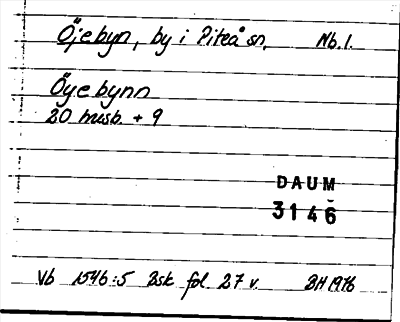 Öjebyn, by i Piteå sn, Nb. l.
Öyebynn
20 husb. + 9
DAUM
3146
Vb 1546:5 Bsk fol 27 v. BH 1976